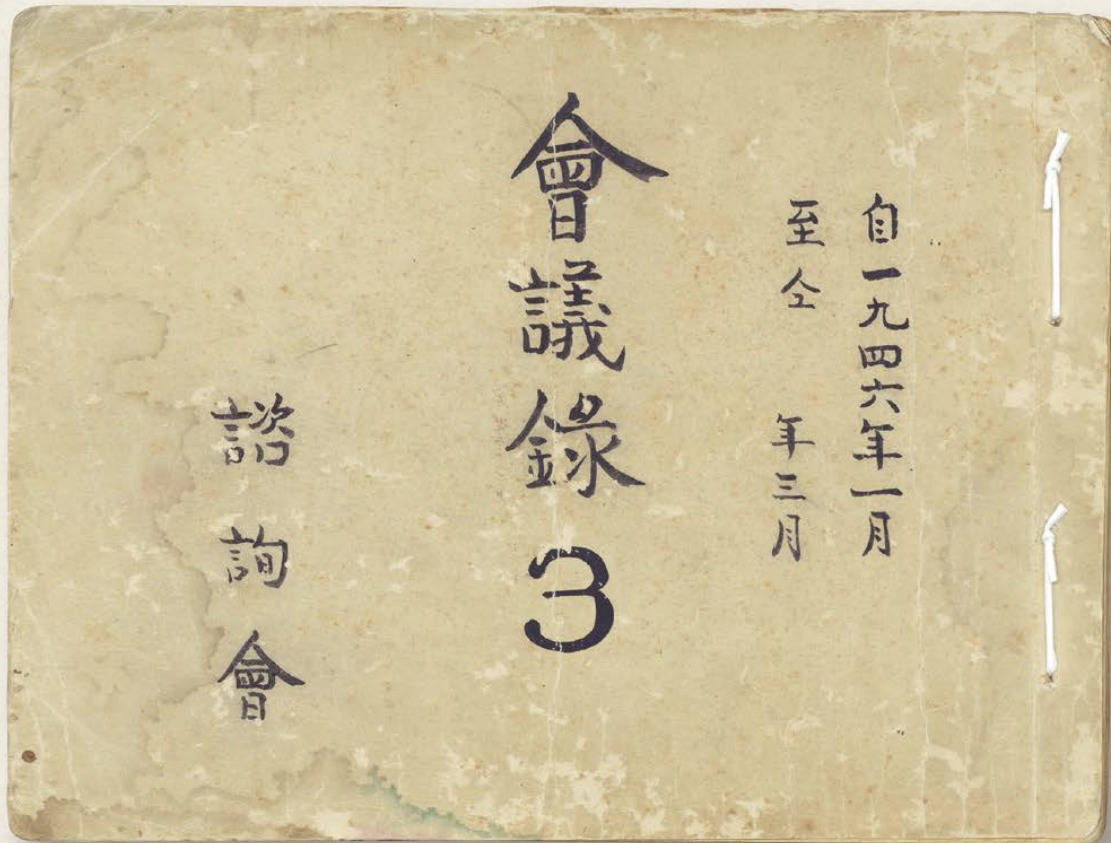 自一九四六年一月
至仝　年三月
會議錄3
諮詢會